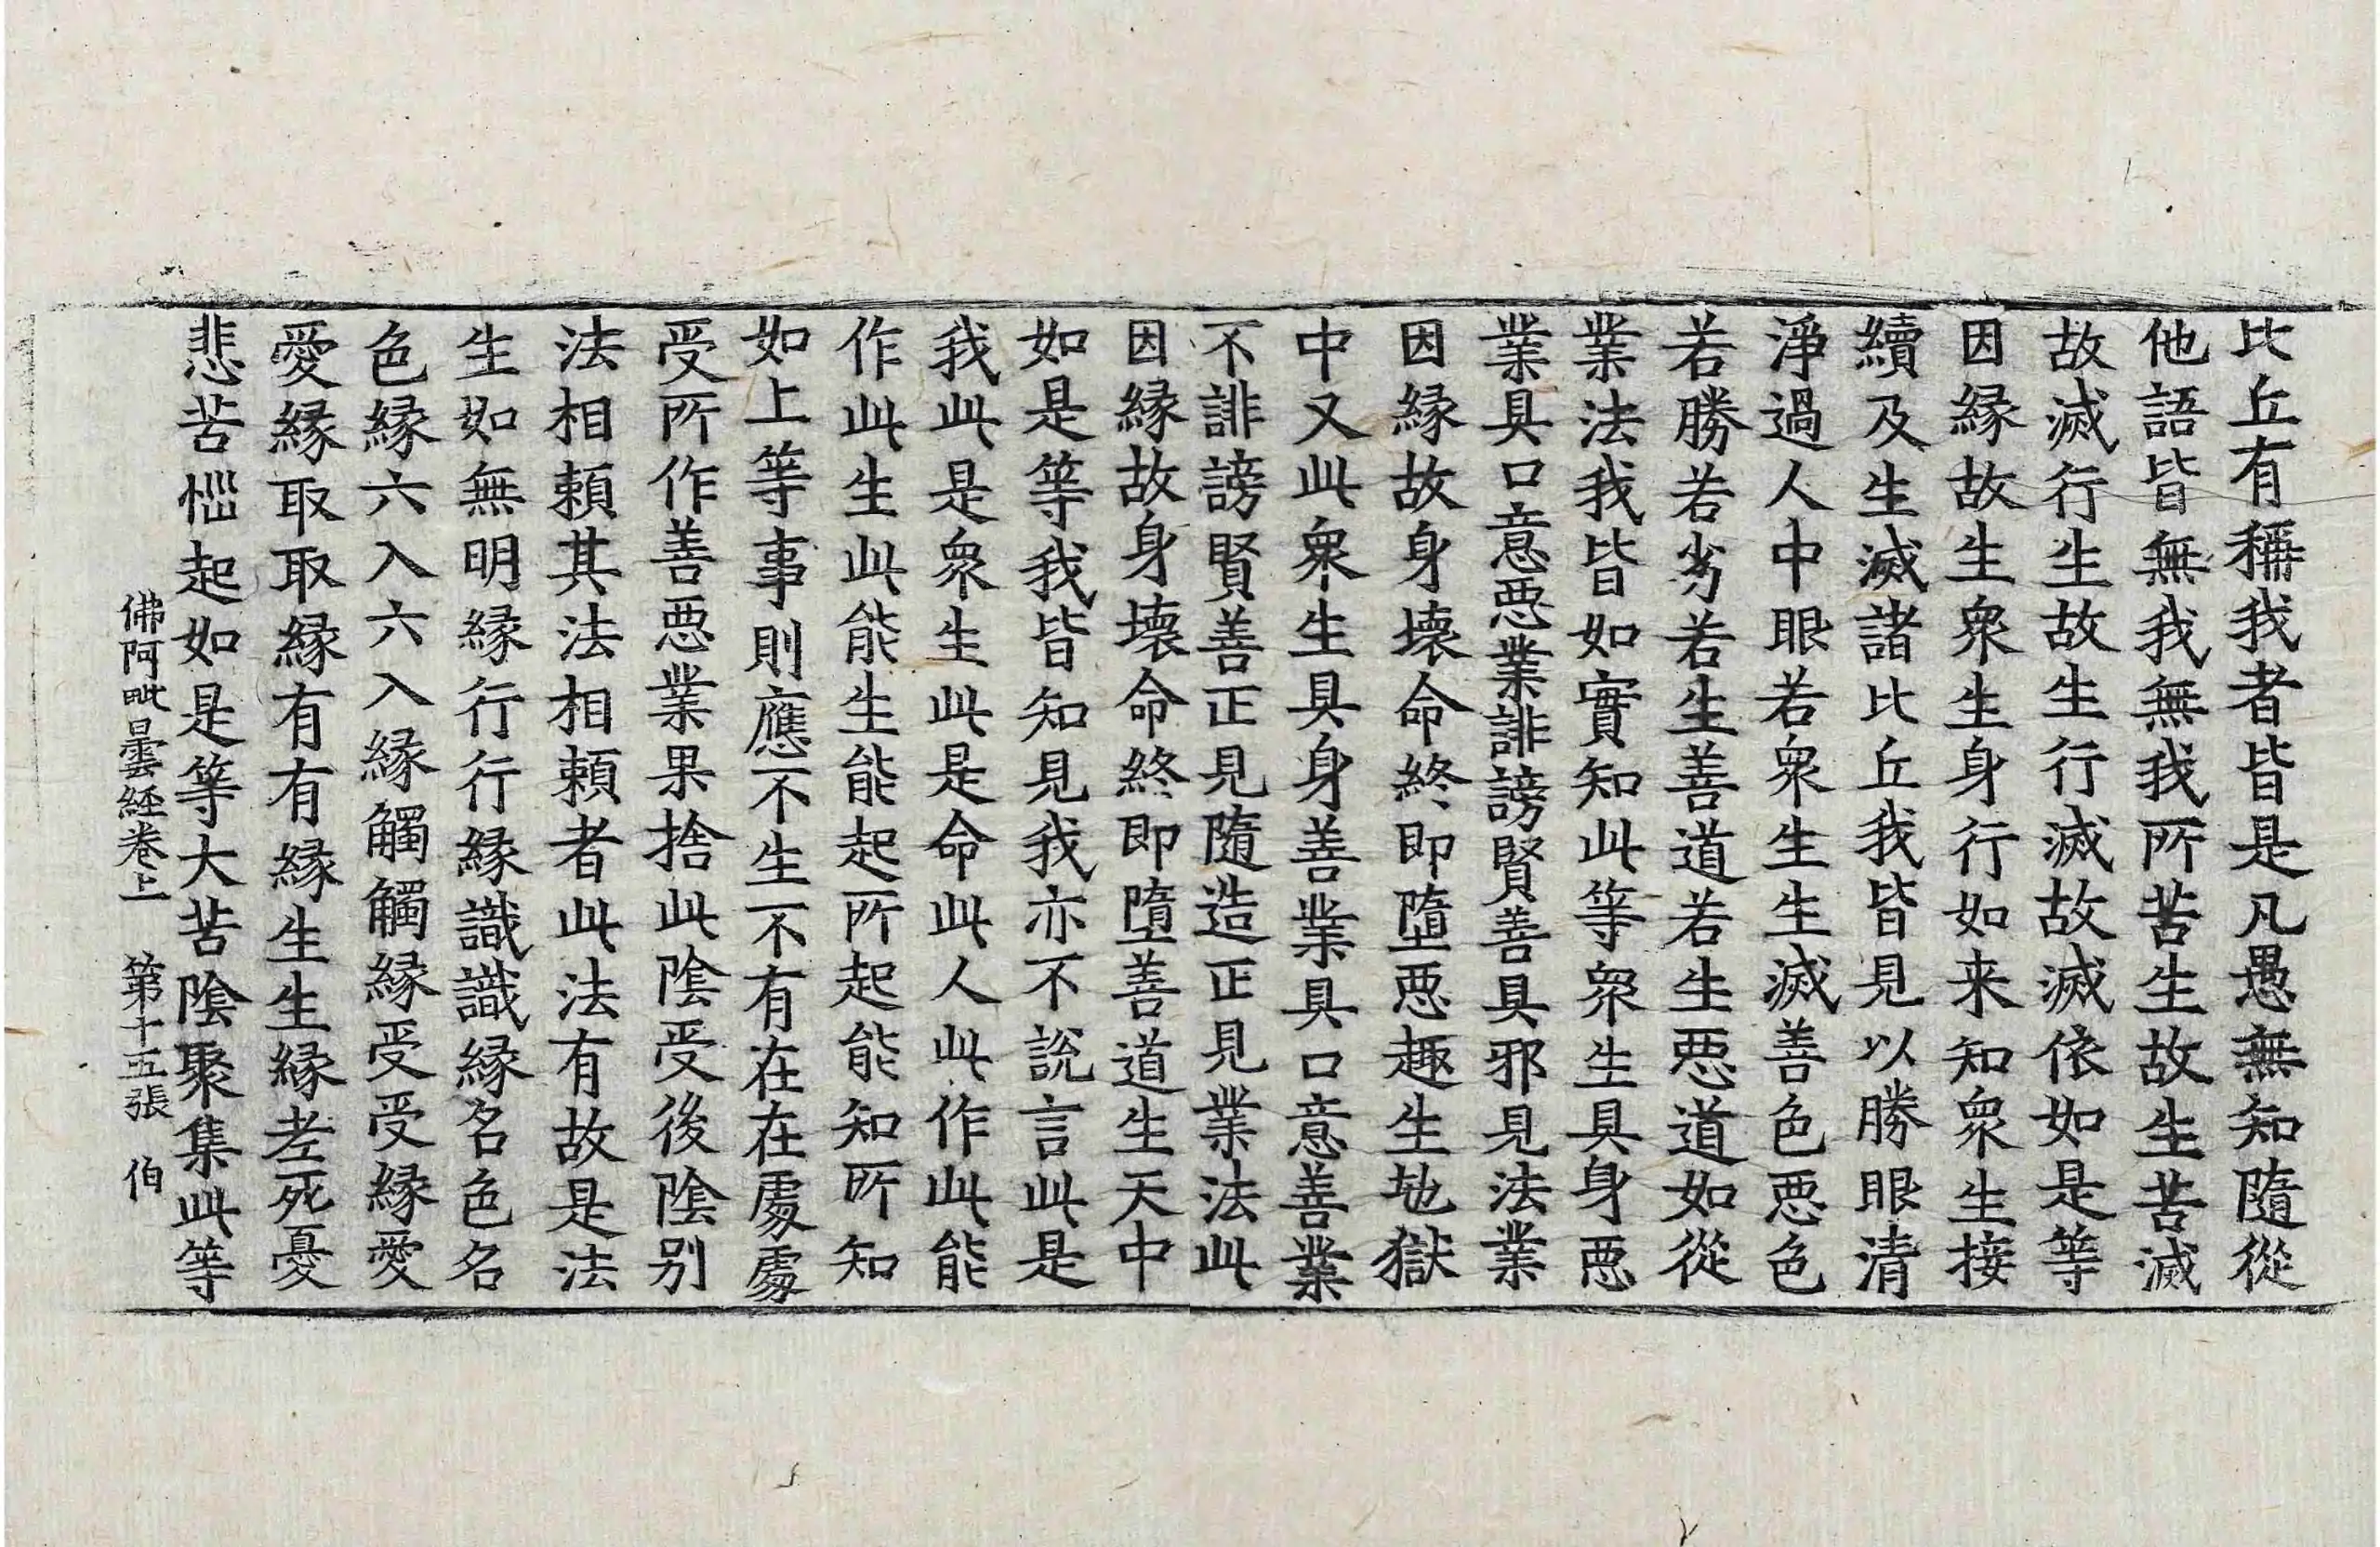 比丘有稱我者皆是凡愚無知隨從
他語皆無我無我所苦生故生苦滅
故滅行生故生行滅故滅依如是等
因縁故生衆生身行如来知衆生接
續及生滅諸比丘我皆見以勝眼清
淨過人中眼若衆生生滅善色惡色
若勝若劣若生善道若生惡道如從
業法我皆如實知此等衆生具身惡
業具口意惡業誹謗賢善具邪見法業
因縁故身壞命終即墮惡趣生地獄
中又此衆生具身善業具口意善業
不誹謗賢善正見隨造正見業法此
因縁故身壞命終即墮善道生天中
如是等我皆知見我亦不說言此是
我此是衆生此是命此人此作此能
作此生此能生能起所起能知所知
如上等事則應不生不有在在處處
受所作善惡業果捨此陰受後陰别
法相頼其法相頼者此法有故是法
生如無明縁行行縁識識縁名色名
色縁六入六入縁觸觸縁受受縁愛
愛縁取取縁有有縁生生縁老死憂
悲苦惱起如是等大苦陰聚集此等
佛阿毗曇経卷上 第十五張 伯